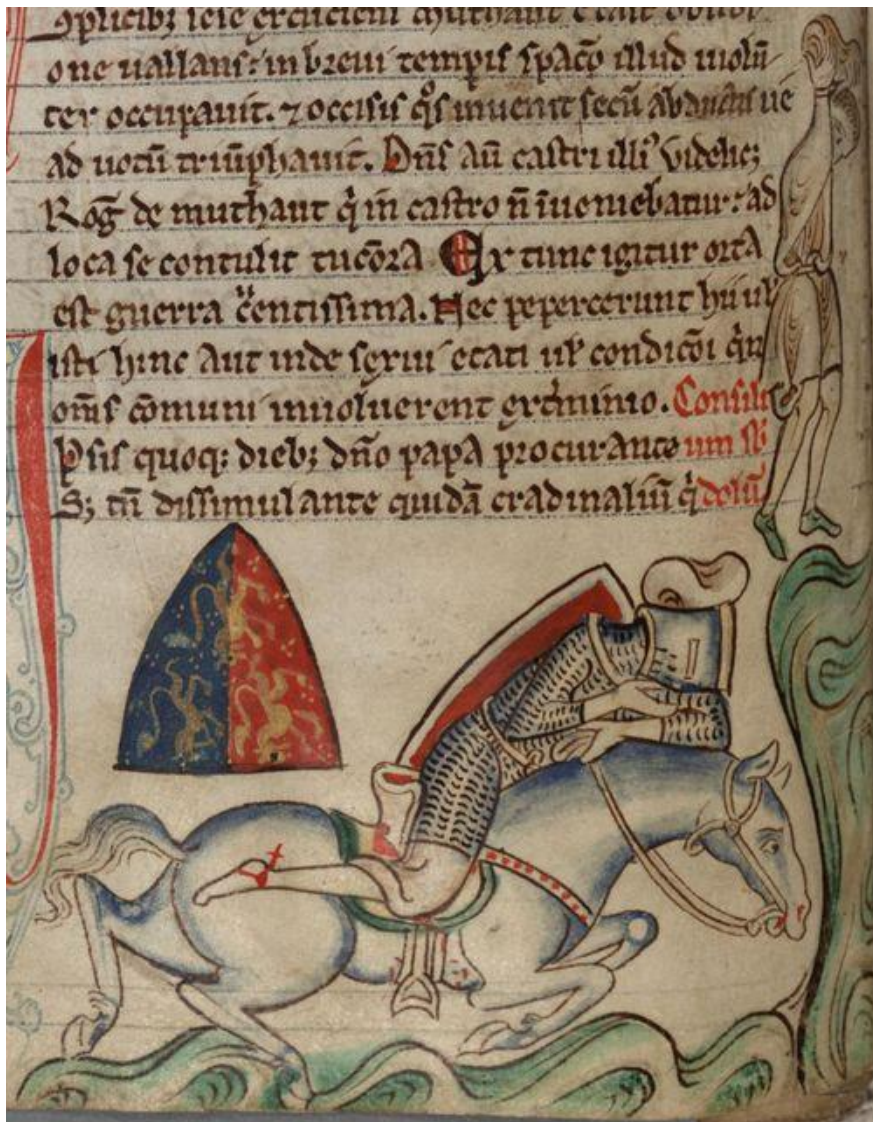 one uallans: in breui tempis spaco illud uiolū
ter occupauit. ⁊ occisis q̊s inuenit secū abductis ue
ad uotū triūphauit. Dn̄s aū castri illiꝰ videlicꝫ
Rog̃ de muthaut q̇ in castro n̄ īueniebatur: ad
loca se contulit tuc̄ora Ex tunc igitur orta
est guerra c̃entissima. Nec pepercerunt hii ul̓
isti hinc aut inde sexui etati ul̓ condic̄oi qīn
om̄s c̄omuni inuoluerent exc̓minio. Consili
Ipsis quoqꝫ diebꝫ dn̄o papa procurante um sb̄
Sꝫ tn̄ dissimulante quidā cradinaliū q̇ dolū